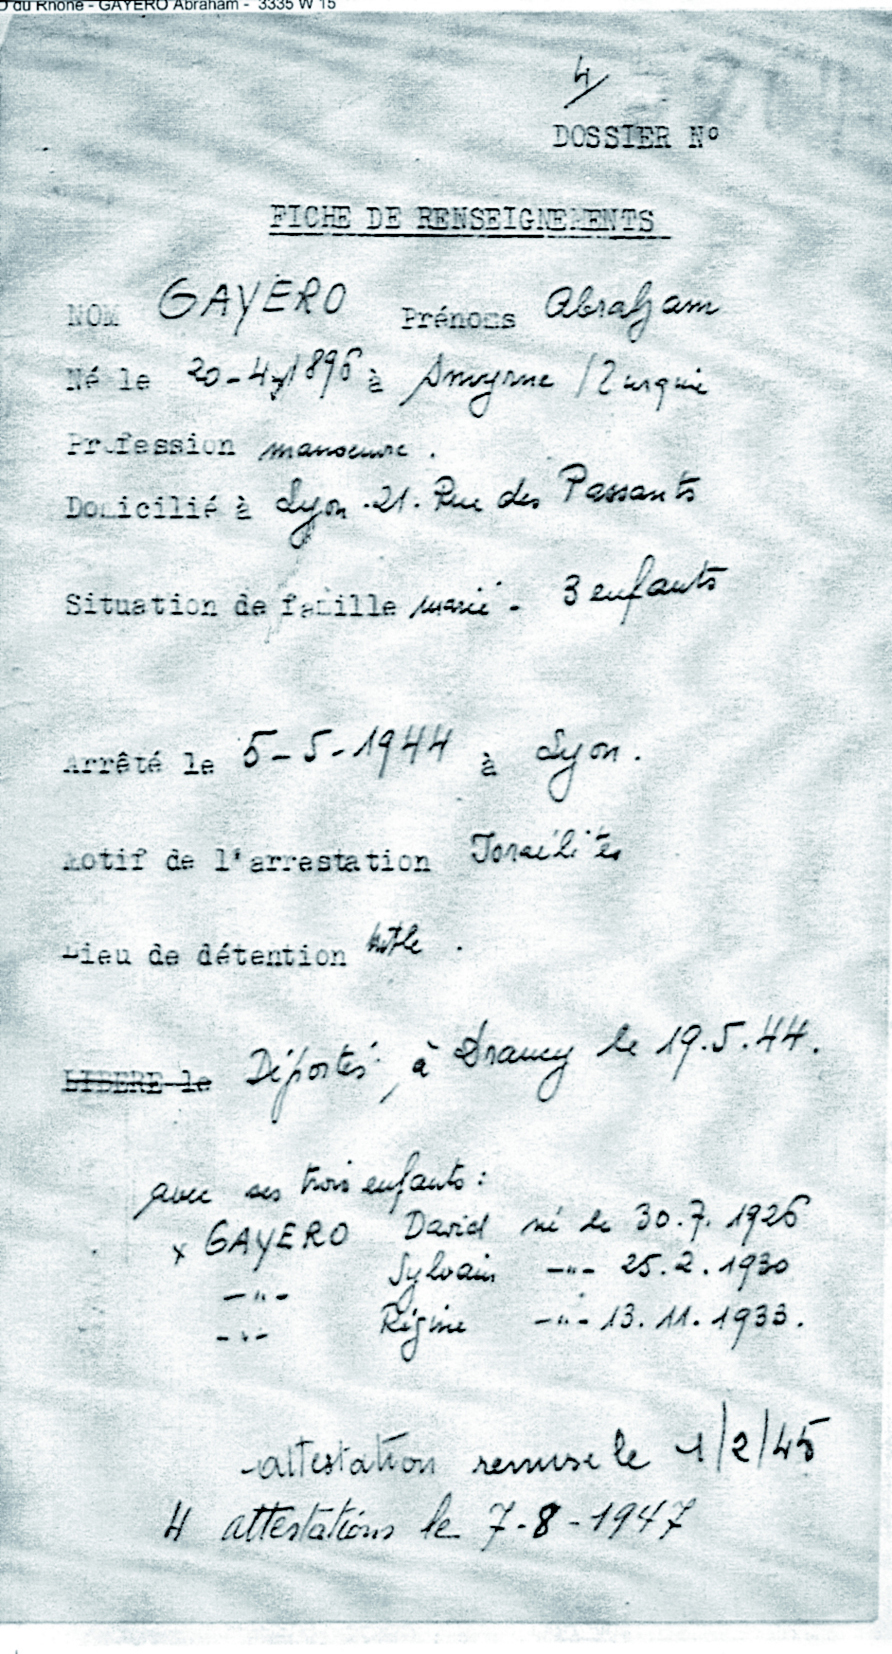 du Rhône - GAYERO Abraham - 3335 W 15
4/
DOSSIER N°
FICHE DE RENSEIGNEMENTS
NOM GAYERO Prénoms Abraham
Né le 20-4-1896 à Smyrne / Turquie
Profession manoeuvre.
Domicilié à Lyon .21. Rue des Passants
Situation de famille marié - 3 enfants
Arrêté le 5-5-1944 à Lyon.
Motif de l'arrestation Israélites
Lieu de détention
LIBERE le Déportés, à Drancy le 19.5.44.
avec ses trois enfants :
x GAYERO David né le 30.7.1926
-"- Sylvain -"- 25.2.1930
-"- Régine -"- 13.11.1933.
-attestation remise le 1/2/45
4 attestations le 7-8-1947